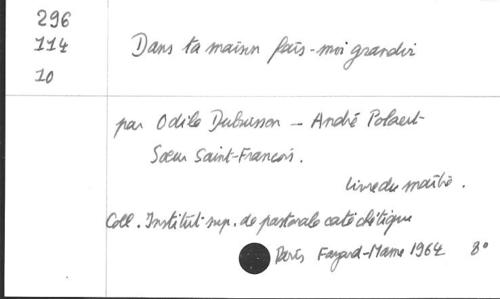 296
114
10
Dans ta maison fais-moi grandir
par Odile Dubuisson - André Polaert-
Sœur Saint-François.
Livre du maître.
Coll. Institut sup. de pastorale catéchétique
Paris Fayard-Mame 1964 8°